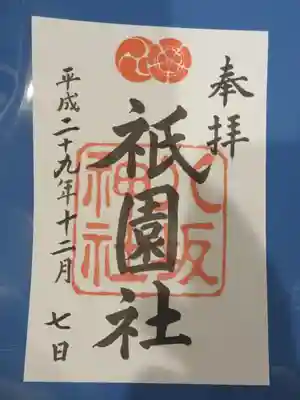 奉拝
八坂神社
祇園社
平成二十九年十二月七日